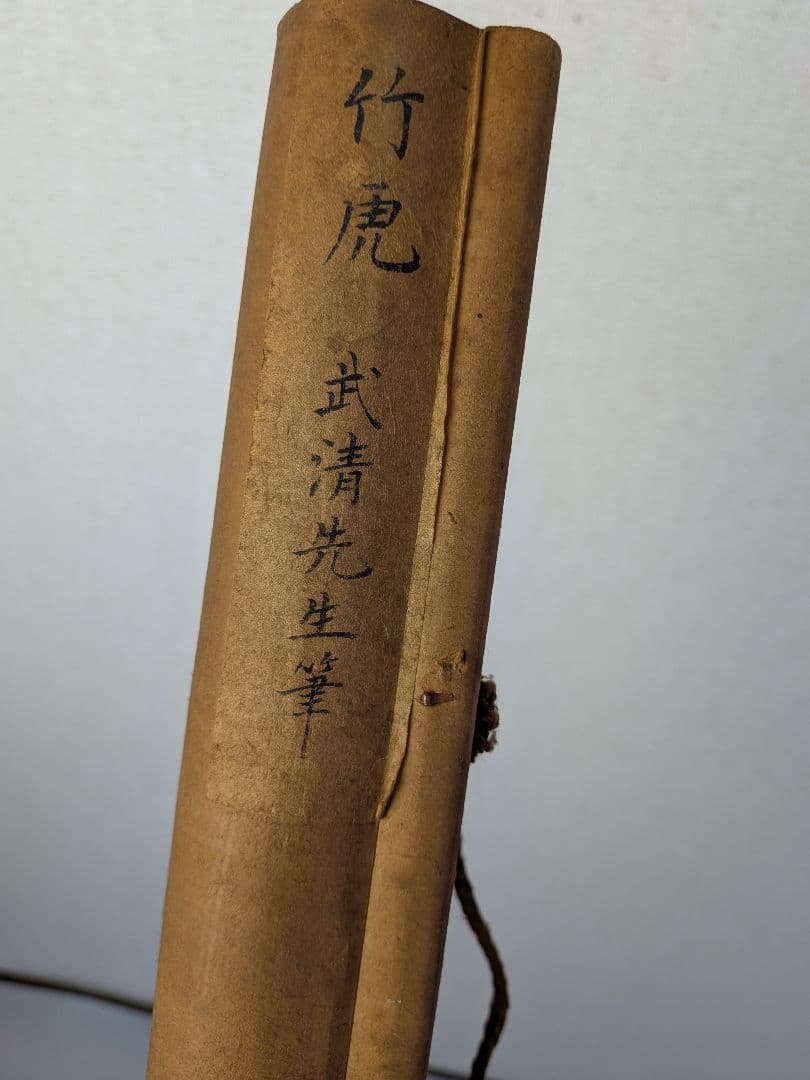 竹虎 武清先生筆